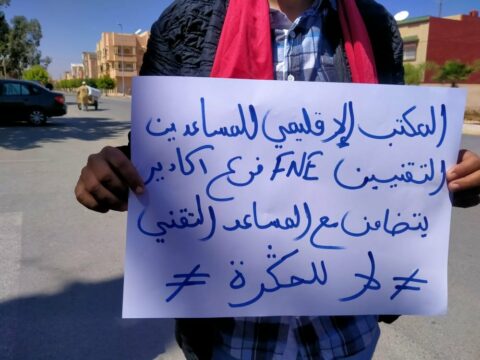 المكتب الإقليمي للمساعدين
التقنيين FNE فرع اكادير
يتضامن مع المساعد التقني
≠ لا للحكرة ≠